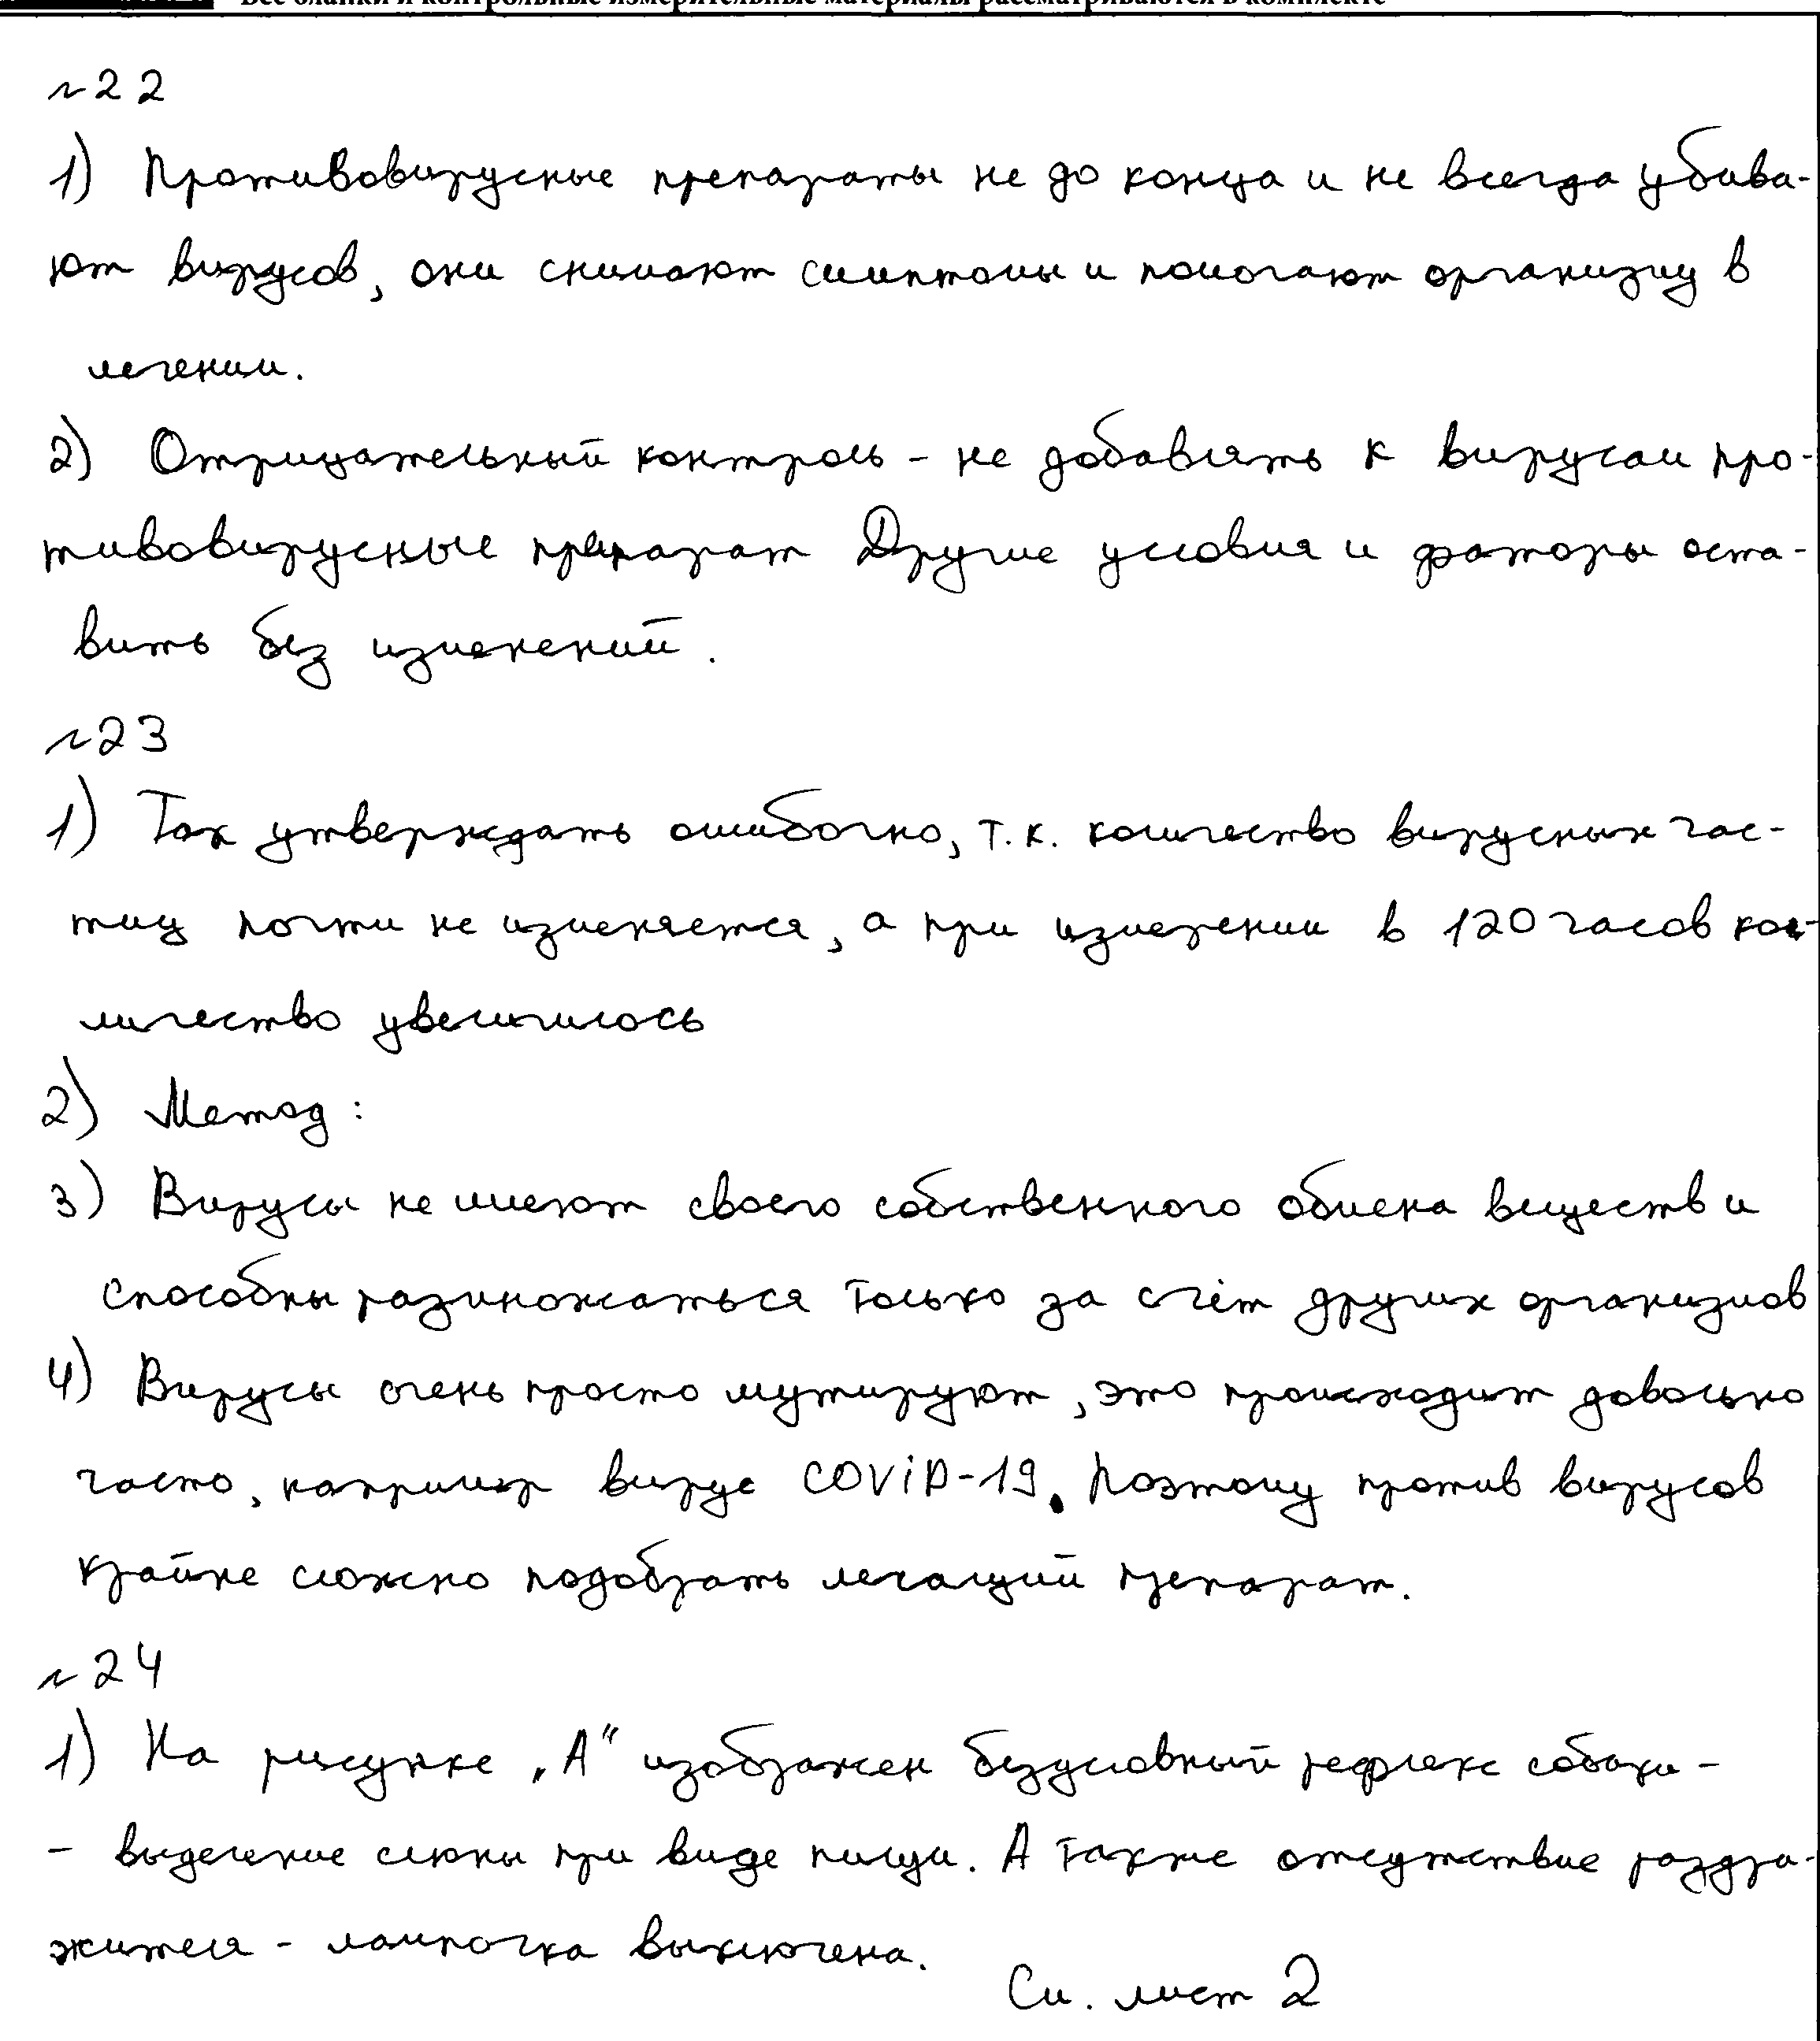 Все бланки и контрольные измерительные материалы рассматриваются в комплекте
№22
1) Противовирусные препараты не до конца и не всегда убива-
ют вирусов, они снимают симптомы и помогают организму в
лечении.
2) Отрицательный контроль - не добавлять к вирусам про-
тивовирусные препарат Другие условия и фаторы оста-
вить без изменений.
№23
1) Так утверждать ошибочно, т.к. количество вирусных час-
тиц почти не изменяется, а при измерении в 120 часов кол-
личество увеличилось
2) Метод:
3) Вирусы не имеют своего собственного обмена веществ и
способны размножаться только за счёт других организмов
4) Вирусы очень просто мутируют, это происходит довольно
часто, например вирус COViD-19. Поэтому против вирусов
крайне сложно подобрать лечащий препарат.
№24
1) На рисунке „А" изображен безусловный рефлекс собаки -
- выделение слюны при виде пищи. А также отсутствие раздра-
жителя - лампочка выключена.
См. лист 2